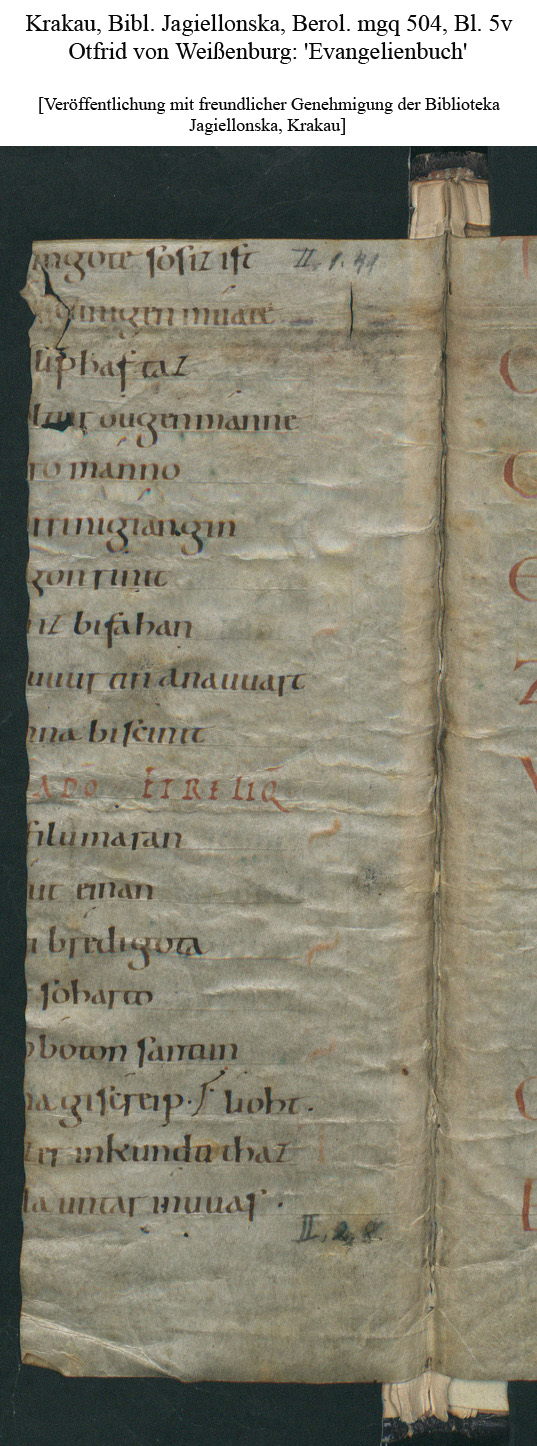 Krakau, Bibl. Jagiellonska, Berol. mgq 504, Bl. 5v
Otfrid von Weißenburg: 'Evangelienbuch'
[Veröffentlichung mit freundlicher Genehmigung der Biblioteka
Jagiellonska, Krakau]
ingote sosiz ist II. 1. 41
liphaftaz
ougen manne
ro mánno
irrinigiangin
gon rinit
iz bifáhan
uuur tin anauuart
nna biscinit
filu maran
ut einan
bredigota
sobarto
boton sarráin
na giscreip. s liobt.
er inkundta thaz
ta untar in uuas.
II, 2, 8